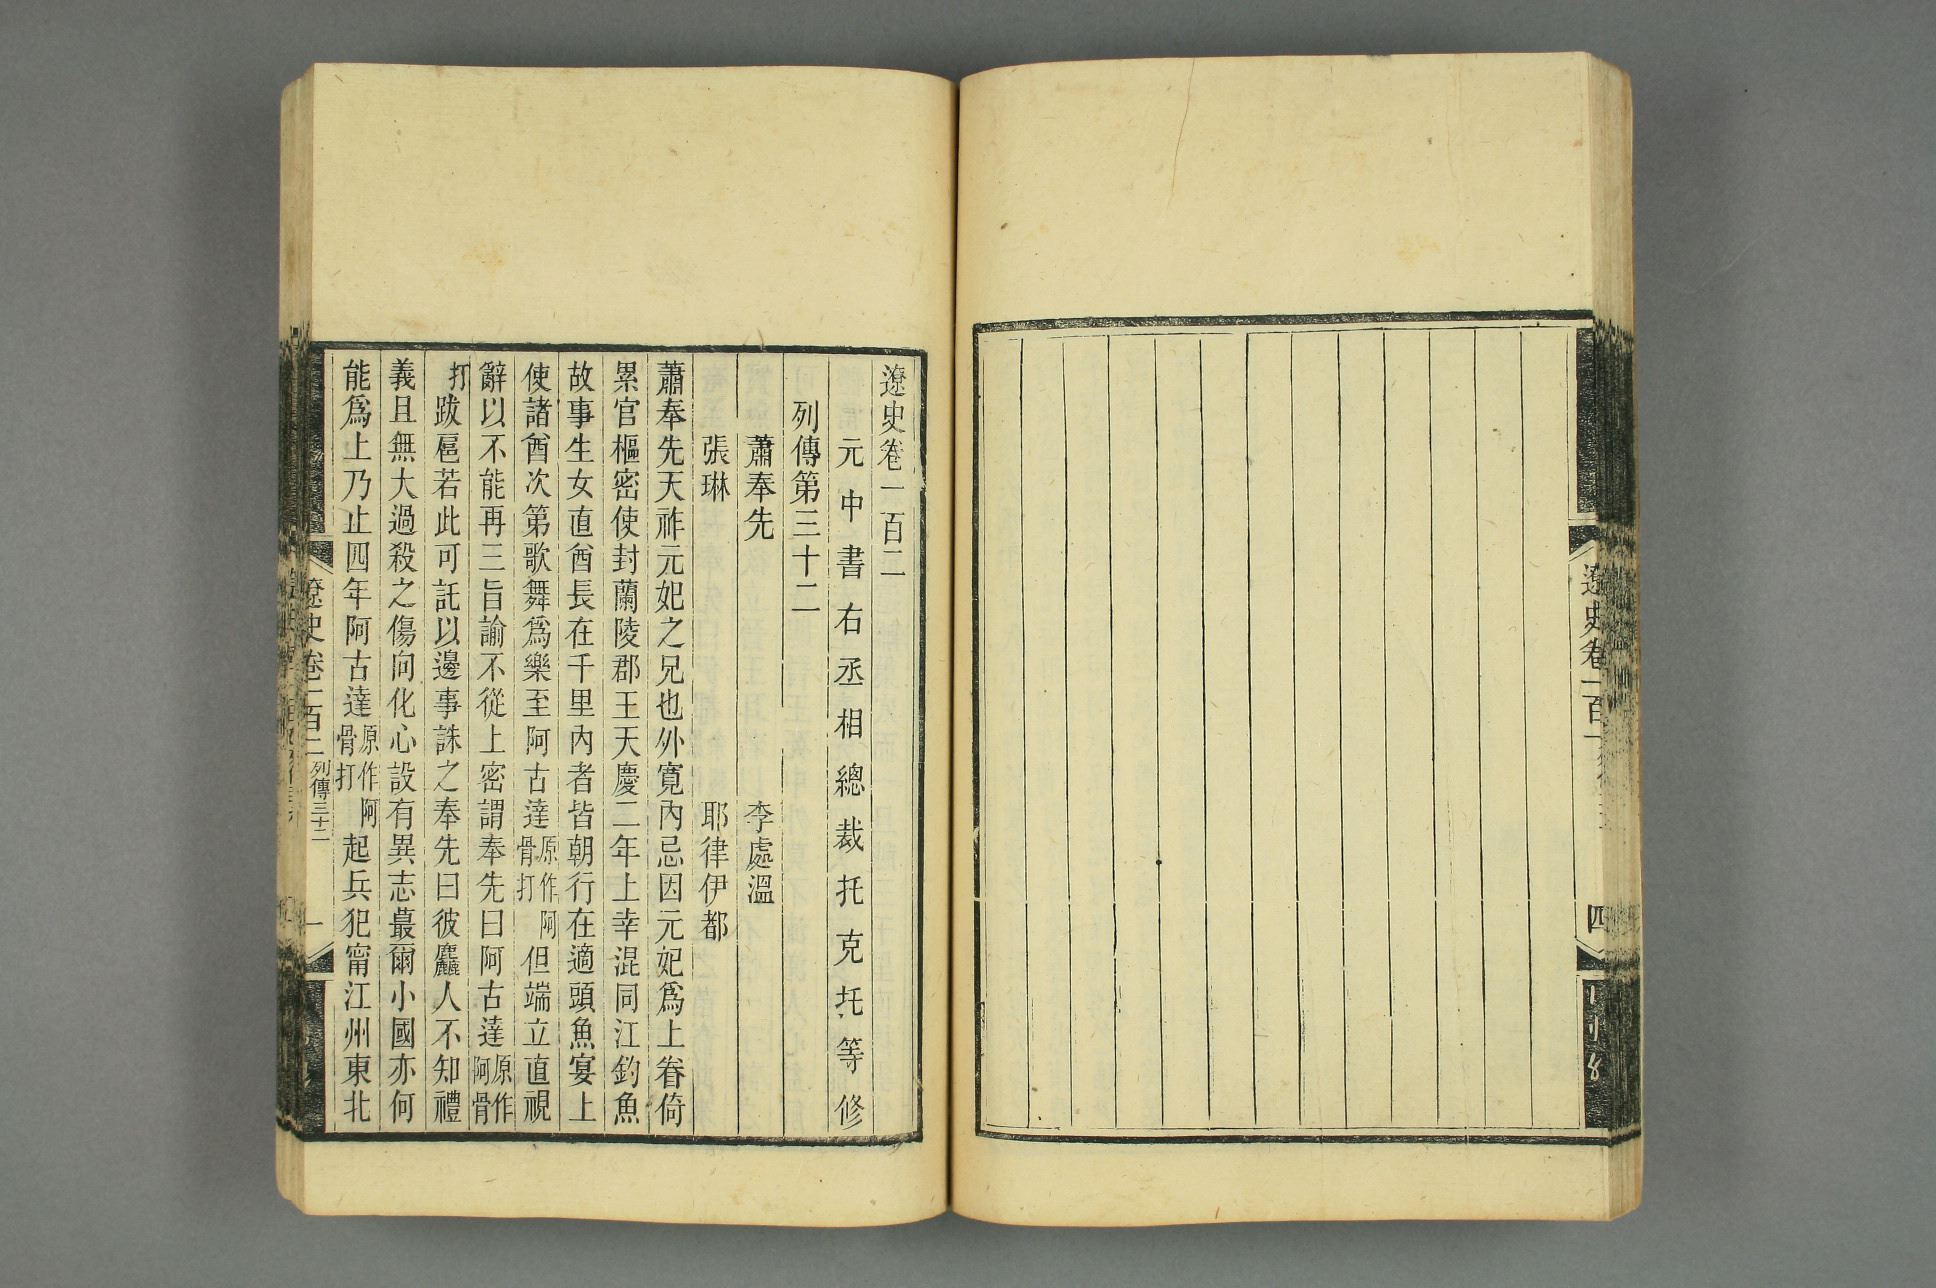 遼史卷一百一
四
遼史卷一百二
元中書右丞相總裁托克托等修
列傳第三十二
蕭奉先 李處溫
張琳 耶律伊都
蕭奉先天祚元妃之兄也外寬內忌因元妃爲上眷倚
累官樞密使封蘭陵郡王天慶二年上幸混同江釣魚
故事生女直酋長在千里內者皆朝行在適頭魚宴上
使諸酋次第歌舞爲樂至阿古達原作阿骨打但端立直視
辭以不能再三旨諭不從上密謂奉先曰阿古達原作阿骨
打跋扈若此可託以邊事誅之奉先曰彼麤人不知禮
義且無大過殺之傷向化心設有異志蕞爾小國亦何
能爲上乃止四年阿古達原作阿骨打起兵犯甯江州東北
遼史卷一百二
列傳三十二
一